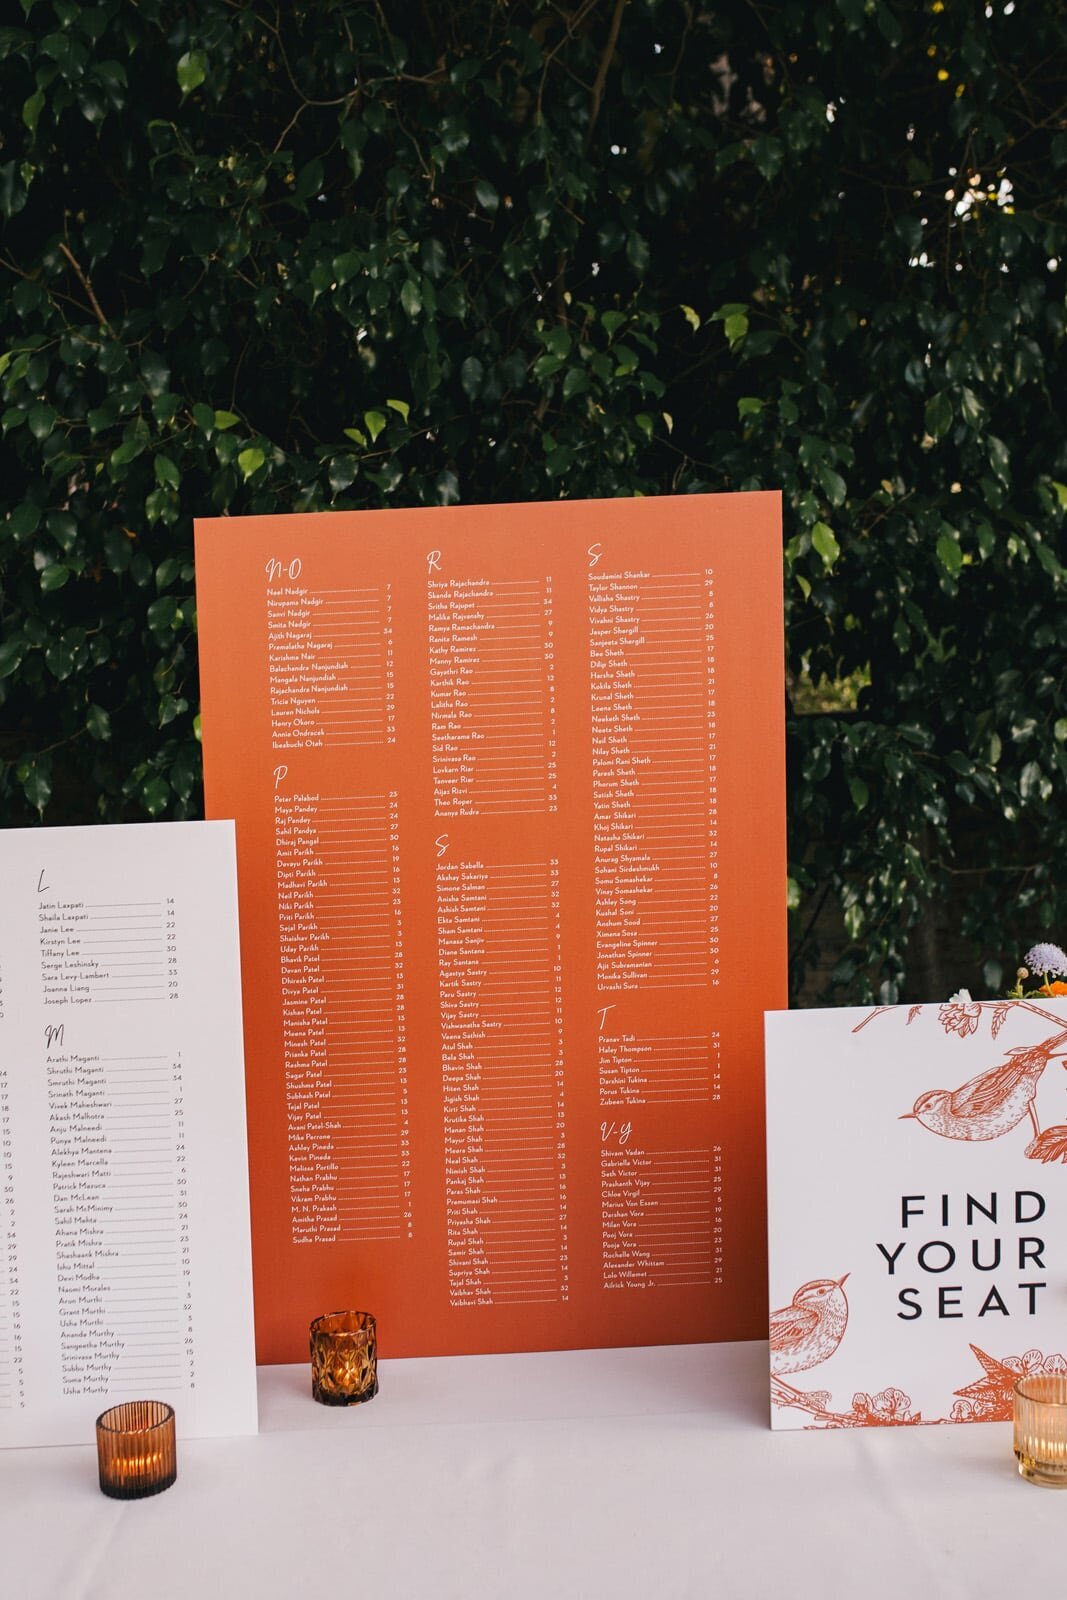 L
Jatin Laxpati 14
Shaila Laxpati 14
Janie Lee 22
Kirstyn Lee 22
Tiffany Lee 30
Serge Leshinsky 28
Sara Levy-Lambert 33
Joanna Liang 20
Joseph Lopez 28
M
Arathi Maganti 1
Shruthi Maganti 34
Smruthi Maganti 34
Srinath Maganti 1
Vivek Maheshwari 27
Akash Malhotra 25
Anju Malneedi 11
Punya Malneedi 11
Alekhya Mantena 24
Kyleen Marcella 22
Rajeshwari Matti 6
Patrick Mazuca 30
Dan McLean 31
Sarah McMinimy 30
Sahil Mehta 24
Ahana Mishra 21
Pratik Mishra 23
Shashaank Mishra 21
Ishu Mittal 10
Devi Modha 19
Naomi Morales 1
Arun Murthi 3
Grant Murthi 32
Usha Murthi 3
Ananda Murthy 8
Sangeetha Murthy 26
Srinivasa Murthy 15
Subbu Murthy 2
Suma Murthy 2
Usha Murthy 8
N-O
Neel Nadgir 7
Nirupama Nadgir 7
Sanvi Nadgir 7
Smita Nadgir 7
Ajith Nagaraj 34
Premalatha Nagaraj 6
Karishma Nair 11
Balachandra Nanjundiah 12
Mangala Nanjundiah 15
Rajachandra Nanjundiah 15
Tricie Nguyen 22
Lauren Nichols 29
Henry Okoro 17
Annie Ondracek 33
Ibeabuchi Oteh 24
P
Peter Palabod 23
Maya Pandey 24
Raj Pandey 24
Sahil Pandya 27
Dhiraj Pangal 30
Amit Parikh 16
Devayu Parikh 19
Dipti Parikh 16
Madhavi Parikh 13
Neil Parikh 32
Niki Parikh 23
Priti Parikh 16
Sejal Parikh 3
Shaishav Parikh 3
Uday Parikh 13
Bhavik Patel 28
Devan Patel 32
Dhiresh Patel 13
Divya Patel 31
Jasmine Patel 28
Kishan Patel 28
Manisha Patel 13
Meena Patel 13
Minesh Patel 32
Prianka Patel 28
Reshma Patel 28
Sagar Patel 23
Shushma Patel 13
Subhash Patel 5
Tejal Patel 13
Vijay Patel 13
Avani Patel-Shah 4
Mike Perrone 29
Ashley Pineda 33
Kevin Pineda 33
Melissa Portillo 22
Nathan Prabhu 17
Sneha Prabhu 17
Vikram Prabhu 17
M. N. Prakash 1
Amitha Prasad 26
Maruthi Prasad 8
Sudha Prasad 8
R
Shriya Rajachandra 11
Skanda Rajachandra 11
Sritha Rajupet 34
Malika Rajvanshy 27
Ramya Ramachandra 9
Ranita Ramesh 9
Kathy Ramirez 30
Manny Ramirez 30
Gayathri Rao 2
Karthik Rao 12
Kumar Rao 8
Lalitha Rao 2
Nirmala Rao 8
Ram Rao 2
Seetharama Rao 1
Sid Rao 12
Srinivasa Rao 2
Lovkarn Riar 25
Tanveer Riar 25
Aijaz Rizvi 4
Theo Roper 33
Ananya Rudra 23
S
Jordan Sabella 33
Akshay Sakariya 33
Simone Salman 27
Anisha Samtani 32
Ashish Samtani 32
Ekta Samtani 4
Sham Samtani 4
Manasa Sanjiv 9
Diana Santana 1
Ray Santana 1
Agastya Sastry 10
Kartik Sastry 11
Paru Sastry 12
Shiva Sastry 12
Vijay Sastry 11
Vishwanatha Sastry 10
Veena Sathish 9
Atul Shah 3
Bela Shah 3
Bhavin Shah 28
Deepa Shah 20
Hiten Shah 14
Jigish Shah 4
Kirti Shah 14
Krutika Shah 13
Manan Shah 20
Mayur Shah 3
Meera Shah 28
Neal Shah 32
Nimish Shah 3
Pankaj Shah 13
Paras Shah 16
Premumasi Shah 16
Priti Shah 14
Priyasha Shah 27
Rita Shah 14
Rupal Shah 3
Samir Shah 14
Shivani Shah 23
Supriya Shah 14
Tejal Shah 3
Vaibhav Shah 32
Vaibhavi Shah 14
S
Soudamini Shankar 10
Taylor Shannon 29
Vallisha Shastry 8
Vidya Shastry 8
Vivahni Shastry 26
Jasper Shergill 20
Sanjeeta Shergill 25
Bee Sheth 17
Dilip Sheth 18
Harsha Sheth 18
Kokila Sheth 21
Krunal Sheth 17
Leena Sheth 18
Neeketh Sheth 23
Neeta Sheth 18
Neil Sheth 17
Nilay Sheth 21
Palomi Rani Sheth 17
Paresh Sheth 18
Phorum Sheth 17
Satish Sheth 18
Yatin Sheth 18
Amar Shikari 28
Khoj Shikari 14
Natasha Shikari 32
Rupal Shikari 14
Anurag Shyamala 27
Sohani Sirdeshmukh 10
Somu Somashekar 8
Vinay Somashekar 26
Ashley Song 22
Kushal Soni 20
Anshum Sood 27
Ximena Sosa 25
Evangelina Spinner 30
Jonathan Spinner 30
Ajit Subramanian 6
Monika Sullivan 29
Urvashi Sura 16
T
Pranav Tadi 24
Haley Thompson 31
Jim Tipton 1
Susan Tipton 1
Darshini Tukina 14
Porus Tukina 14
Zubeen Tukina 28
V-Y
Shivam Vadan 26
Gabriella Victor 31
Seth Victor 31
Prashanth Vijay 25
Chloe Virgil 29
Marius Von Essen 5
Darshan Vora 19
Milan Vora 16
Pooj Vora 20
Pooja Vora 23
Rochelle Wang 31
Alexander Whittam 29
Lolo Willemet 21
Ailrick Young Jr. 25
FIND
YOUR
SEAT